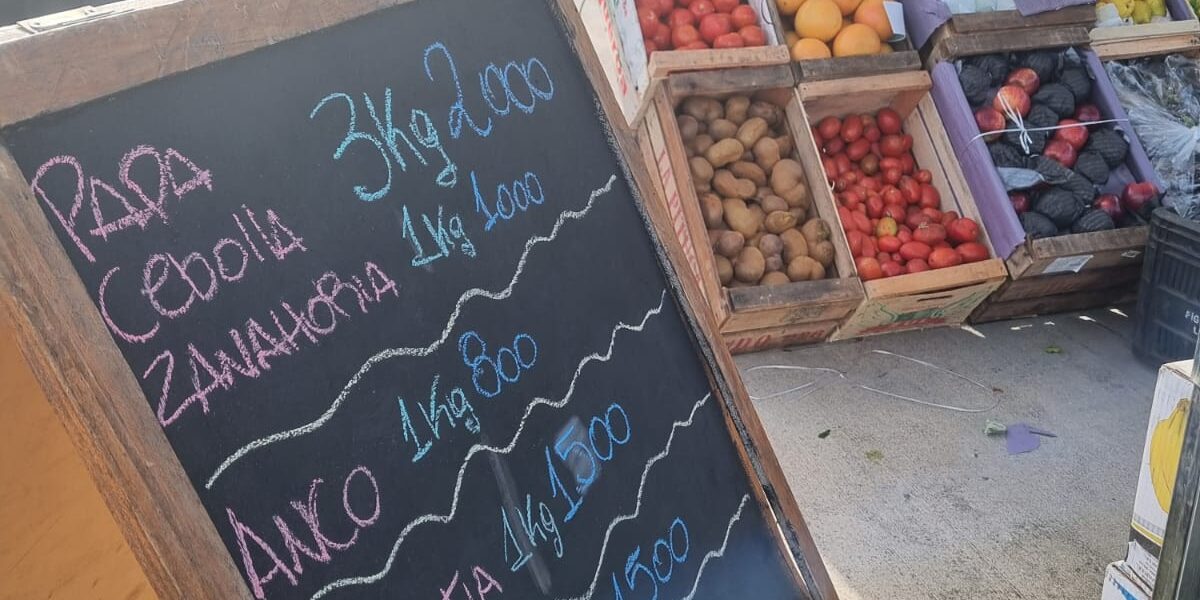 PAPA 3Kg 2000
Cebolla 1Kg 1000
ZANAHORIA
ANCO 1Kg 800
1Kg 1500
1500